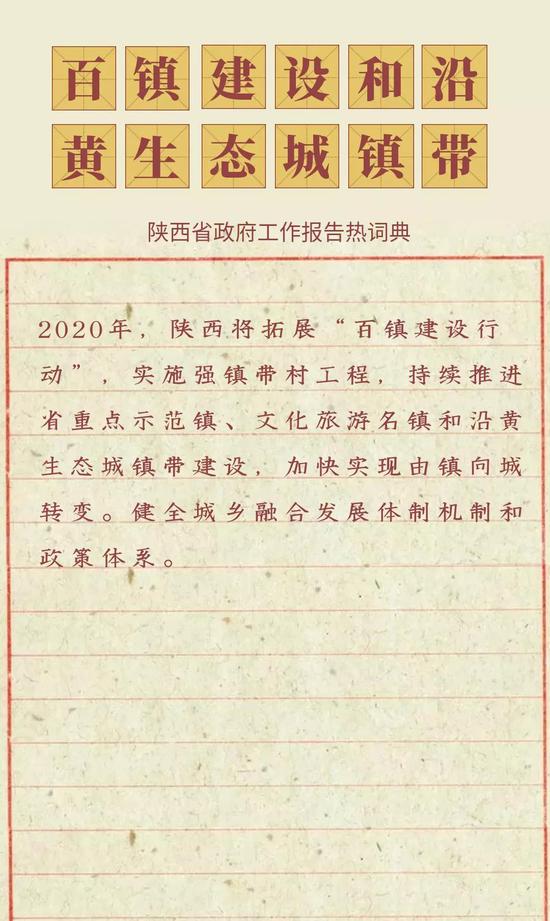 百镇建设和沿
黄生态城镇带
陕西省政府工作报告热词典
2020年，陕西将拓展“百镇建设行
动”，实施强镇带村工程，持续推进
省重点示范镇、文化旅游名镇和沿黄
生态城镇带建设，加快实现由镇向城
转变。健全城乡融合发展体制机制和
政策体系。